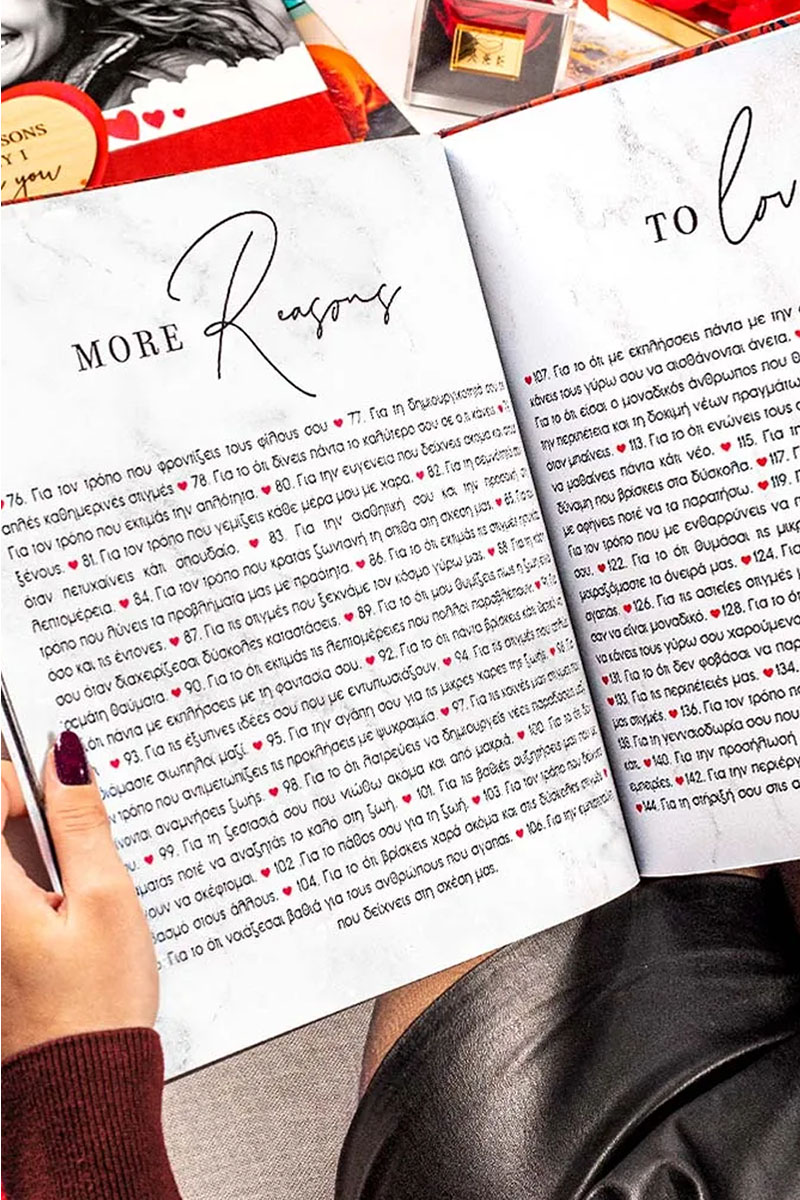 SONS
Y I
you
MORE Reasons
76. Για τον τρόπο που φροντίζεις τους φίλους σου ♥ 77. Για τη δημιουργικότητά σου σε
απλές καθημερινές στιγμές ♥ 78. Για το ότι δίνεις πάντα το καλύτερο σου σε ό,τι κάνεις ♥
Για τον τρόπο που εκτιμάς την απλότητα. ♥ 80. Για την ευγένεια που δείχνεις ακόμα και στους
ξένους. ♥ 81. Για τον τρόπο που γεμίζεις κάθε μέρα μου με χαρά. ♥ 82. Για τη σεμνότητά σου
όταν πετυχαίνεις κάτι σπουδαίο. ♥ 83. Για την αισθητική σου και την προσοχή στη
λεπτομέρεια. ♥ 84. Για τον τρόπο που κρατάς ζωντανή τη σπίθα στη σχέση μας. ♥ 85. Για τον
τρόπο που λύνεις τα προβλήματα μας με πραότητα. ♥ 86. Για το ότι εκτιμάς τις στιγμές ηρεμίας
όσο και τις έντονες. ♥ 87. Για τις στιγμές που ξεχνάμε τον κόσμο γύρω μας. ♥ 88. Για τη
σου όταν διαχειρίζεσαι δύσκολες καταστάσεις. ♥ 89. Για το ότι μου θυμίζεις πως η ζωή είναι
γεμάτη θαύματα. ♥ 90. Για το ότι εκτιμάς τις λεπτομέρειες που πολλοί παραβλέπουν. ♥ 91. Για
ότι πάντα με εκπλήσσεις με τη φαντασία σου. ♥ 92. Για το ότι πάντα βρίσκεις κάτι
♥ 93. Για τις έξυπνες ιδέες σου που με εντυπωσιάζουν. ♥ 94. Για τις στιγμές που απλώς
όμαστε σιωπηλοί μαζί. ♥ 95. Για την αγάπη σου για τις μικρές χαρές της ζωής. ♥ 96. Για
τρόπο που αντιμετωπίζεις τις προκλήσεις με ψυχραιμία. ♥ 97. Για τις κοινές μας στιγμές που
ίνονται αναμνήσεις ζωής. ♥ 98. Για το ότι λατρεύεις να δημιουργείς νέες παραδόσεις μαζί
♥ 99. Για τη ζεστασιά σου που νιώθω ακόμα και από μακριά. ♥ 100. Για το ότι δεν
ματάς ποτέ να αναζητάς το καλό στη ζωή. ♥ 101. Για τις βαθιές συζητήσεις μας που με
νουν να σκέφτομαι. ♥ 102. Για το πάθος σου για τη ζωή. ♥ 103. Για τον τρόπο που δείχνεις
βασμό στους άλλους. ♥ 104. Για το ότι βρίσκεις χαρά ακόμα και στις δύσκολες στιγμές ♥
Για το ότι νοιάζεσαι βαθιά για τους ανθρώπους που αγαπάς. ♥ 106. Για την εμπιστοσύνη
που δείχνεις στη σχέση μας.
TO lov
♥107. Για το ότι με εκπλήσσεις πάντα με την
κάνεις τους γύρω σου να αισθάνονται άνετα. ♥
Για το ότι είσαι ο μοναδικός άνθρωπος που
την περιπέτεια και τη δοκιμή νέων πραγμάτων
όταν μπαίνεις. ♥ 113. Για το ότι ενώνεις τους
να μαθαίνεις πάντα κάτι νέο. ♥ 115. Για τη
δύναμη που βρίσκεις στα δύσκολα. ♥ 117.
με αφήνεις ποτέ να τα παρατήσω. ♥ 119.
Για τον τρόπο που με ενθαρρύνεις να
σου. ♥ 122. Για το ότι θυμάσαι τις μικρ
μοιραζόμαστε τα όνειρά μας. ♥ 124. Για
αγαπάς ♥ 126. Για τις αστείες στιγμές
σαν να είναι μοναδικό. ♥ 128. Για το ότι
να κάνεις τους γύρω σου χαρούμενο
♥ 131. Για το ότι δεν φοβάσαι να παρ
♥ 133. Για τις περιπέτειές μας. ♥ 134.
μας στιγμές. ♥ 136. Για τον τρόπο
138. Για τη γενναιοδωρία σου που
κάτι. ♥ 140. Για την προσήλωσή
εμπειρίες. ♥ 142. Για την περιέργ
♥ 144. Για τη στήριξή σου στις